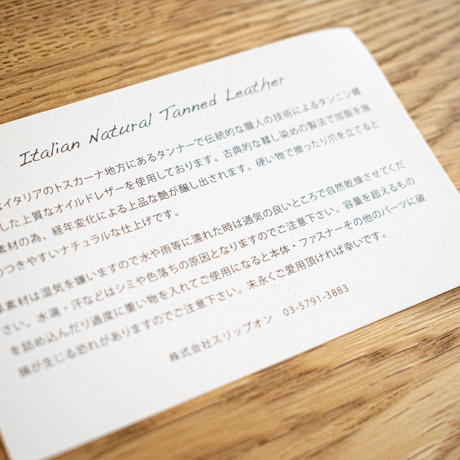 Italian Natural Tanned Leather
はイタリアのトスカーナ地方にあるタンナーで伝統的な職人の技術によるタンニン鞣
した上質なオイルドレザーを使用しております。古典的な鞣し染めの製法で加脂を施
素材の為、経年変化による上品な艶が醸し出されます。硬い物で擦ったり爪を立てると
のつきやすいナチュラルな仕上げです。
素材は湿気を嫌いますので水や雨等に濡れた時は通気の良いところで自然乾燥させてくだ
さい。水滴・汗などはシミや色落ちの原因となりますのでご注意下さい。容量を超えるもの
を詰め込んだり過度に重い物を入れてご使用になると本体・ファスナーその他のパーツに破
損が生じる恐れがありますのでご注意下さい。末永くご愛用頂ければ幸いです。
株式会社スリップオン 03-5791-3883